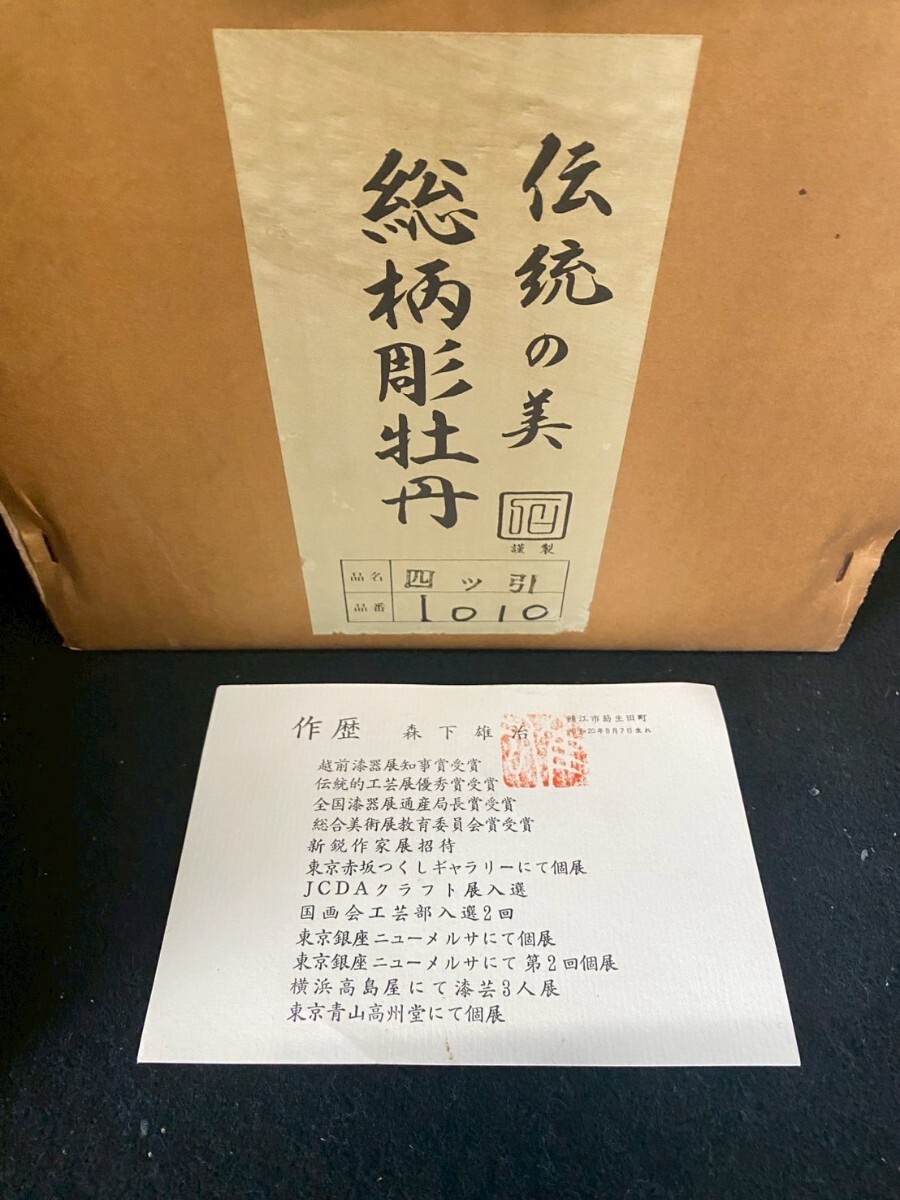 伝統の美
総柄彫牡丹
謹製
品名 四ッ引
品番 1010
作歴 森下雄治
鯖江市莇生田町
20年9月7日生れ
越前漆器展知事賞受賞
伝統的工芸展優秀賞受賞
全国漆器展通産局長賞受賞
総合美術展教育委員会賞受賞
新鋭作家展招待
東京赤坂つくしギャラリーにて個展
JCDAクラフト展入選
国画会工芸部入選2回
東京銀座ニューメルサにて個展
東京銀座ニューメルサにて第2回個展
横浜高島屋にて漆芸3人展
東京青山高州堂にて個展